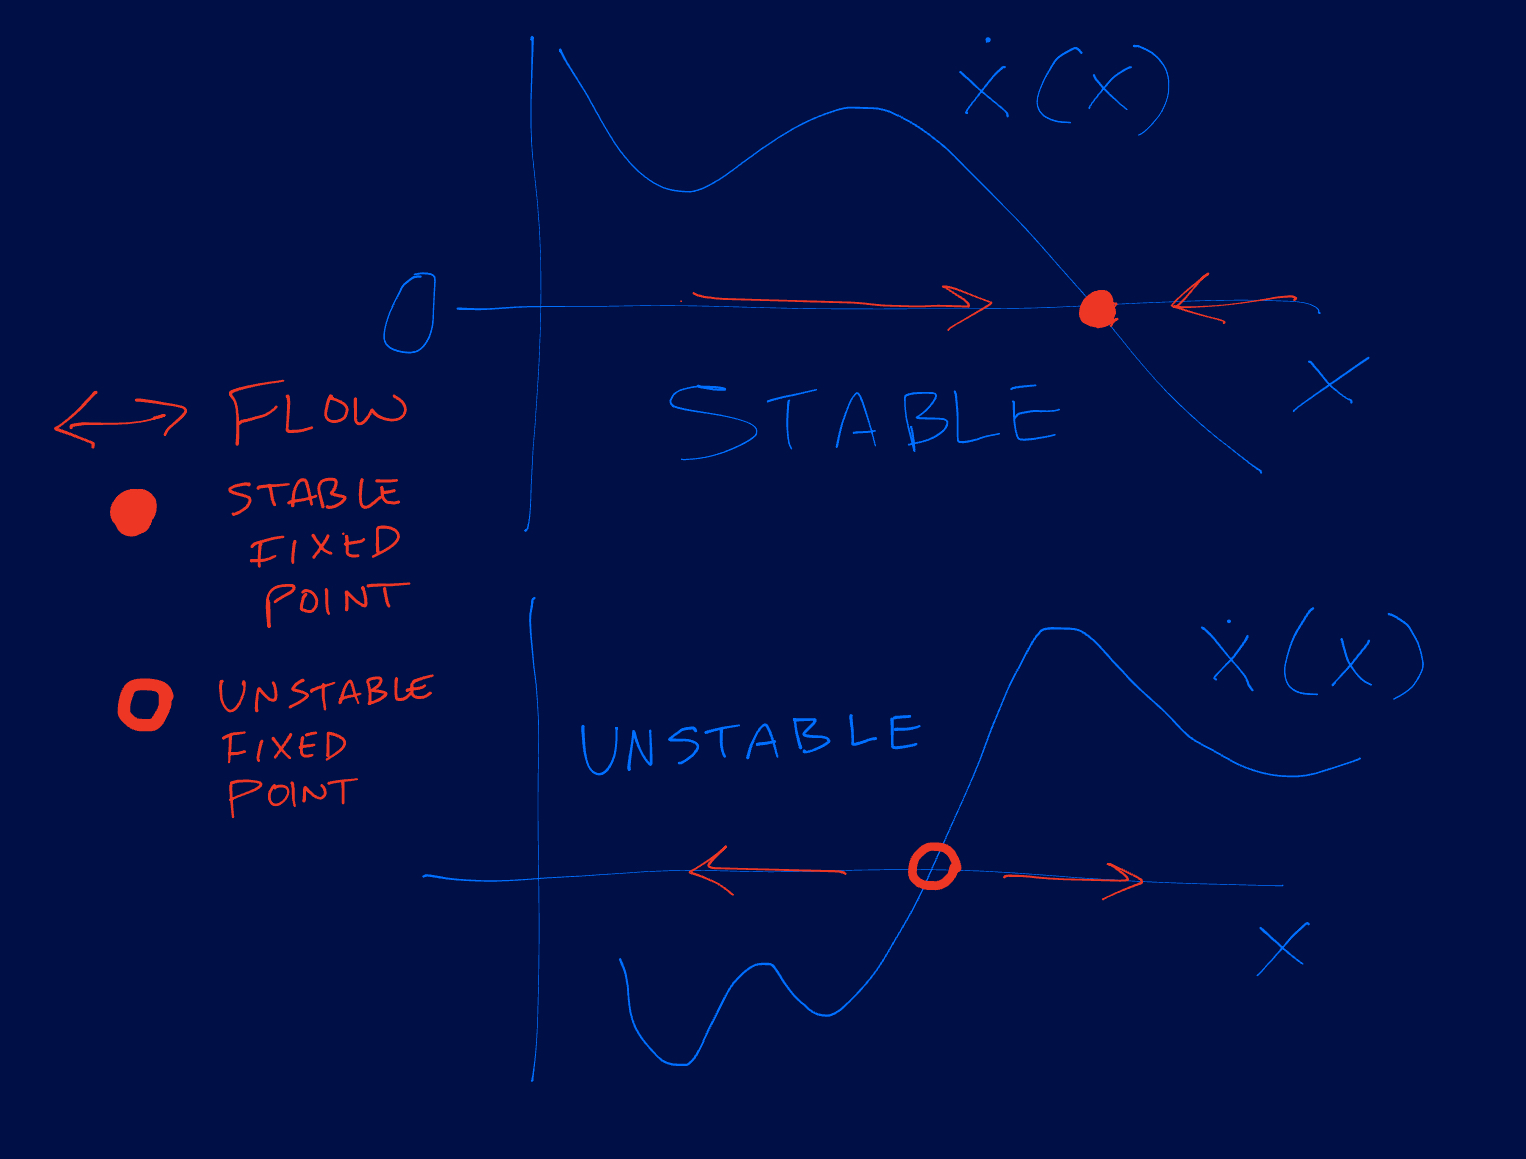 ẋ(x)
0
x
STABLE
FLOW
STABLE
FIXED
POINT
UNSTABLE
FIXED
POINT
ẋ(x)
UNSTABLE
x